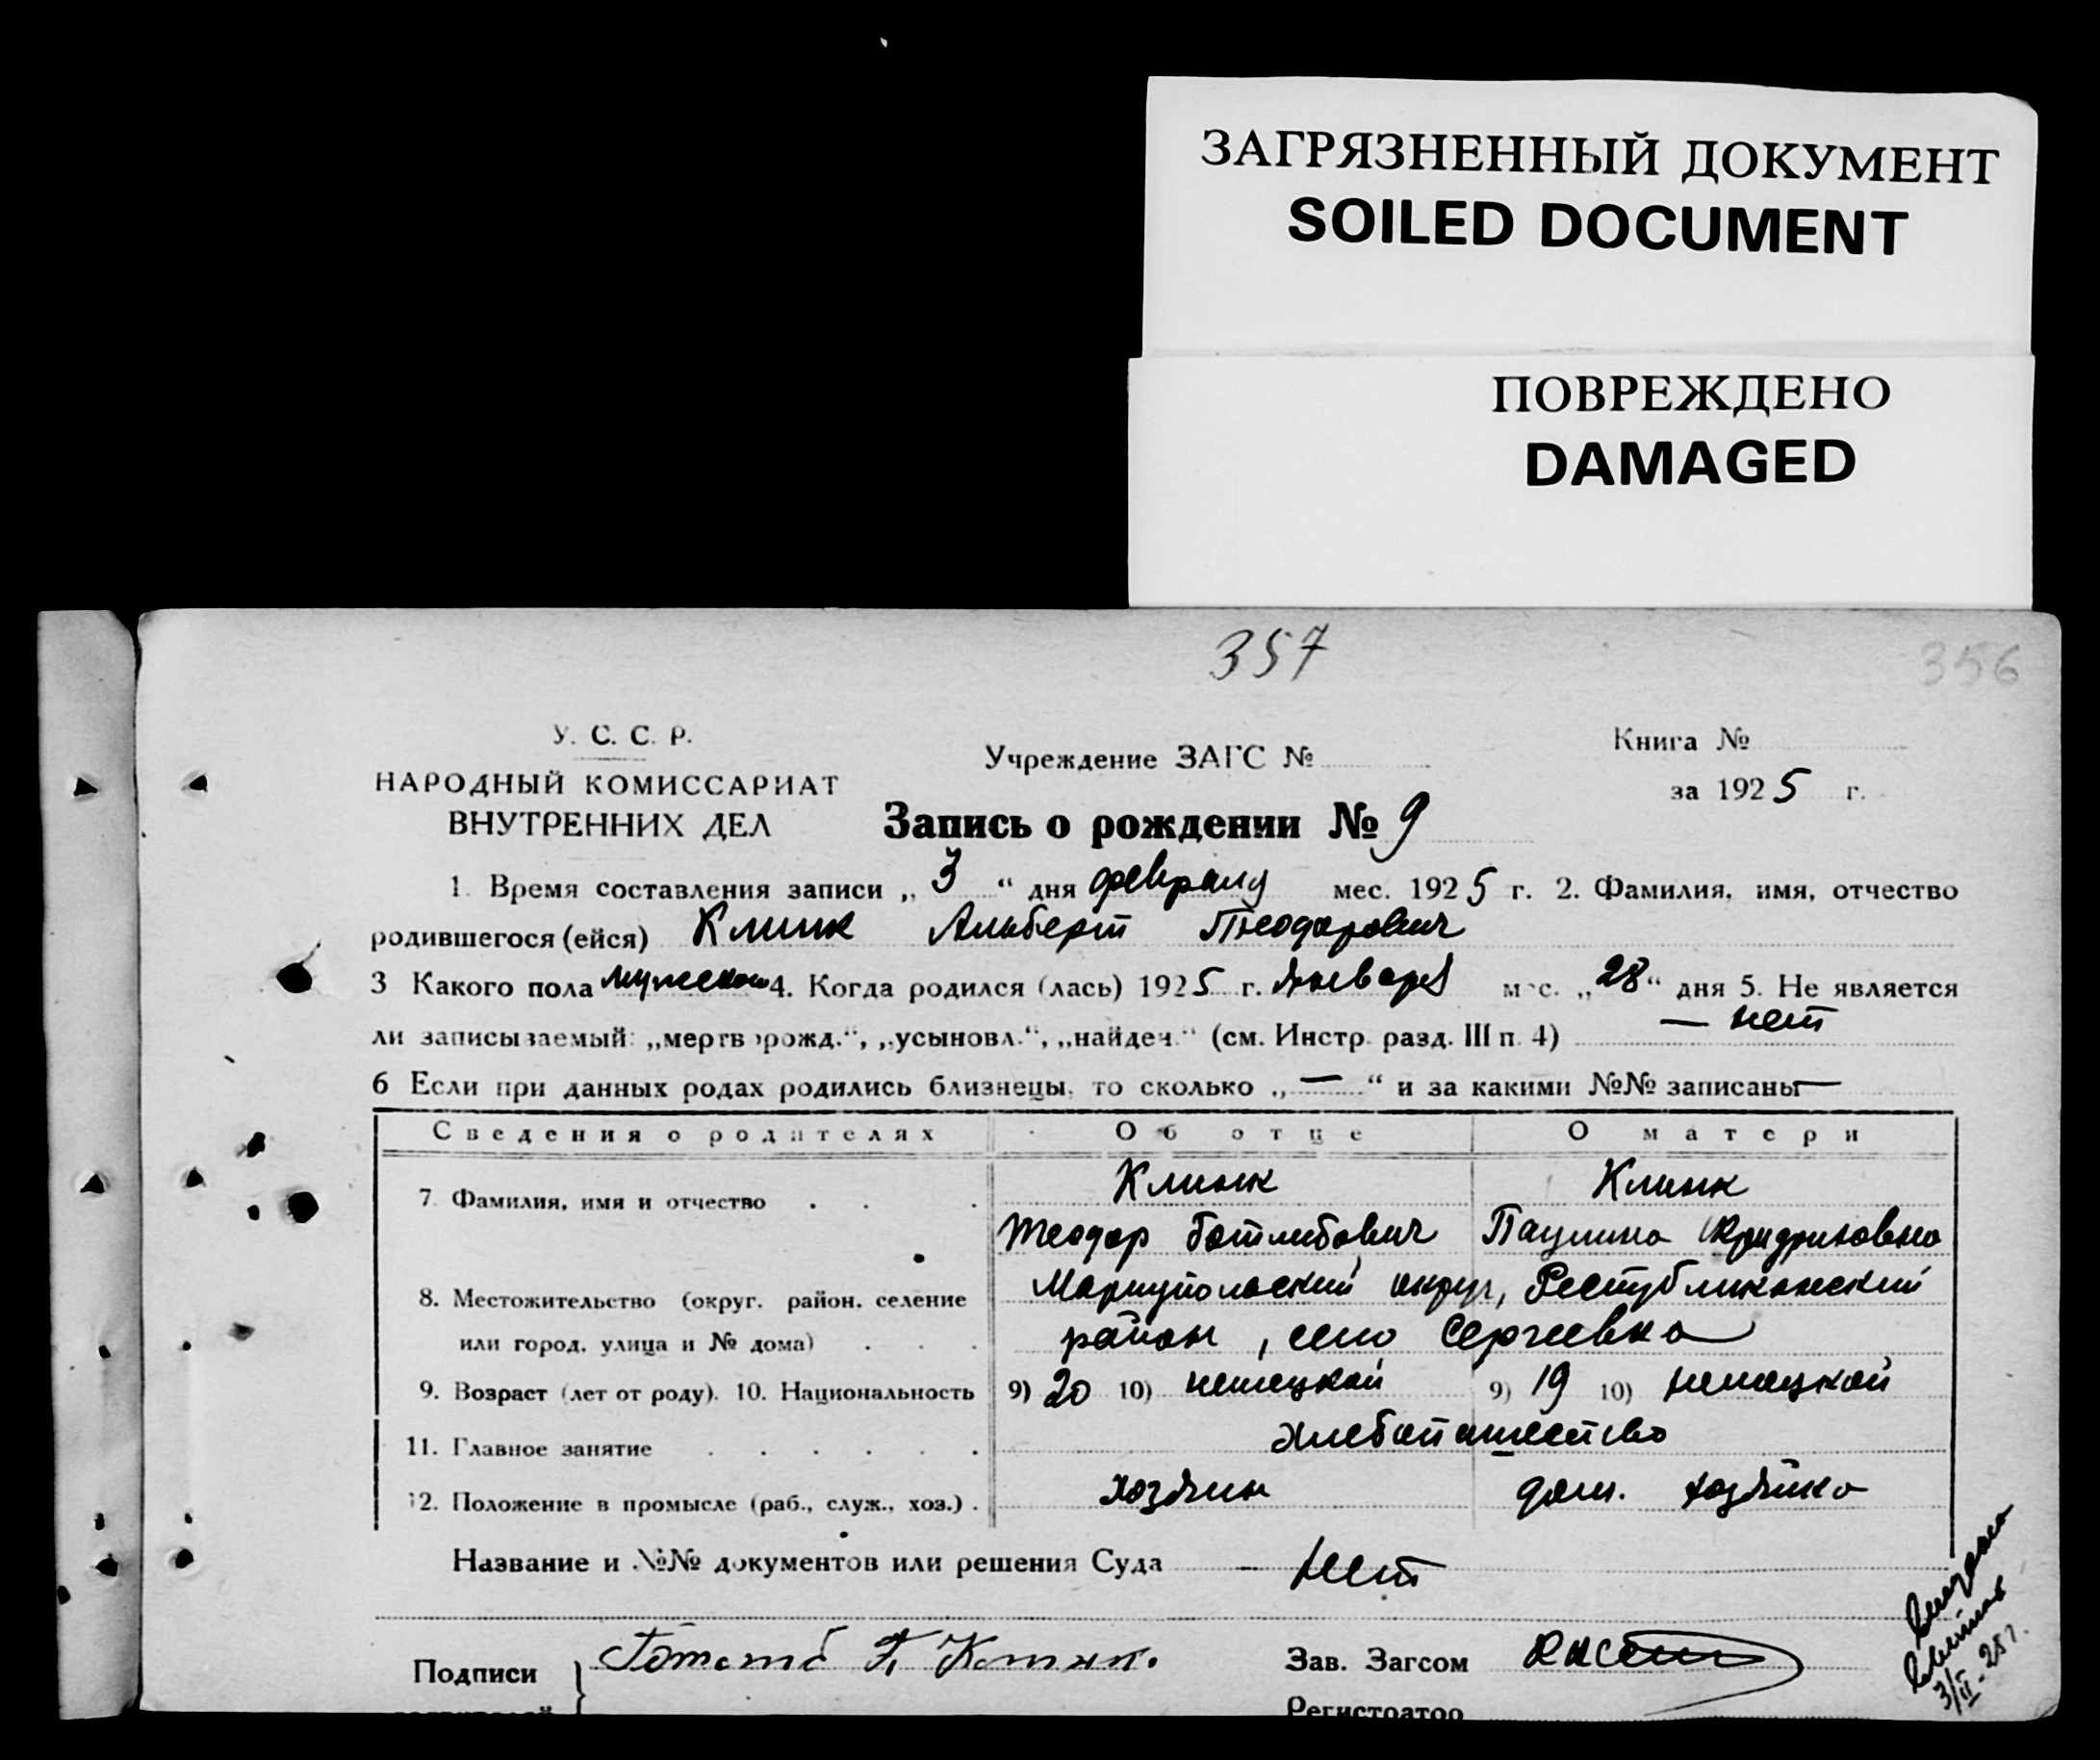 ЗАГРЯЗНЕННЫЙ ДОКУМЕНТ
SOILED DOCUMENT
ПОВРЕЖДЕНО
DAMAGED
357
356
У. С. С. Р.
НАРОДНЫЙ КОМИССАРИАТ
ВНУТРЕННИХ ДЕЛ
Учреждение ЗАГС №
Книга №
за 1925 г.
Запись о рождении № 9
1. Время составления записи „3“ дня февраля мес. 1925 г. 2. Фамилия, имя, отчество
родившегося (ейся) Клинк Альберт Теодорович
3 Какого пола мужеског 4. Когда родился (лась) 1925 г. Января мес. „28“ дня 5. Не является
ли записываемый: „мертворожд.“, „усыновл.“, „найден.“ (см. Инстр. разд. III п. 4) — нет
6 Если при данных родах родились близнецы, то сколько „—“ и за какими №№ записаны —
Сведения о родителях Об отце О матери
7. Фамилия, имя и отчество . . . Клинк Клинк
Теодор Готлибович Паулина Фридриховна
8. Местожительство (округ, район, селение Мариупольский округ, Республиканский
или город, улица и № дома) . . . район, село Сергеевка
9. Возраст (лет от роду). 10. Национальность 9) 20 10) немецкой 9) 19 10) немецкой
11. Главное занятие . . . . . . хлебопашество
12. Положение в промысле (раб., служ., хоз.) . хозяин дом. хозяйка
Название и №№ документов или решения Суда — Нет
Подписи
Зав. Загсом
Регистратор
3/II-25 г.